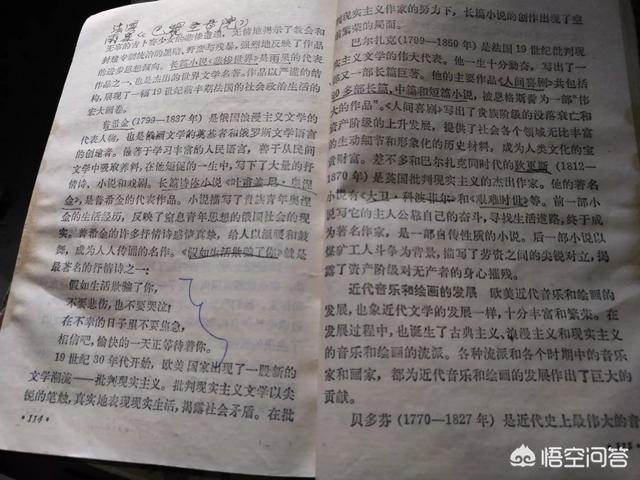 法国
雨果《巴黎圣母院》
无辜的吉卜赛少女的悲惨遭遇，无情地揭示了教会和
封建专制统治的黑暗、野蛮与残暴，强烈地反映了作品
的进步思想倾向。长篇小说《悲惨世界》是雨果的代表
作品之一，也是杰出的世界文学名著。作品以严谨的结
构，展现了一幅19世纪前半期法国的社会政治生活的
宏大画卷。
普希金（1799—1837年）是俄国浪漫主义文学的
代表人物，也是俄国文学的奠基者和俄罗斯文学语言
的创建者。他善于学习丰富的人民语言，善于从民间
文学中吸取养料，在他短促的一生中，写下了大量的抒
情诗、小说和戏剧。长篇诗体小说《叶甫盖尼·奥涅
金》，是普希金的代表作品。小说描写了贵族青年奥涅
金的生活经历，反映了窒息青年思想的俄国社会的现
实。普希金的许多抒情诗感情真挚，给人以温暖和鼓
舞，成为人人传诵的名作。《假如生活欺骗了你》就是
最著名的抒情诗之一：
假如生活欺骗了你，
不要悲伤，也不要哭泣！
在不幸的日子里不要焦急，
相信吧，愉快的一天正等待着你。
19世纪30年代开始，欧美国家出现了一股新的
文学潮流——批判现实主义。批判现实主义文学以尖
锐的笔触，真实地表现现实生活，揭露社会矛盾。在批
·114·
判现实主义作家的努力下，长篇小说的创作出现了空
前繁荣的局面。
巴尔扎克（1799—1850年）是法国19世纪批判现
实主义文学的伟大代表。他一生十分勤奋，写出了一
部又一部长篇巨著。他的主要作品《人间喜剧》共包括
90多部长篇、中篇和短篇小说，被恩格斯誉为一部“伟
大的作品”。《人间喜剧》写出了贵族阶级的没落衰亡和
资产阶级的上升发展，提供了社会各个领域无比丰富
的生动细节和形象化的历史材料，成为人类文化的宝
贵财富。差不多和巴尔扎克同时代的狄更斯（1812—
1870年）是英国批判现实主义的杰出作家。他的著名
小说有《大卫·科波菲尔》和《艰难时世》等。前一部小
说写它的主人公靠自己的奋斗，寻找生活道路，终于成
为著名作家，是一部自传性质的小说。后一部小说以
煤矿工人斗争为背景，描写了劳资之间的尖锐对立，揭
露了资产阶级对无产者的身心摧残。
近代音乐和绘画的发展　欧美近代音乐和绘画的
发展，也象近代文学的发展一样，十分丰富和繁荣。在
发展过程中，也诞生了古典主义、浪漫主义和现实主义
的音乐和绘画的流派。各种流派和各个时期中的音乐
家和画家，都为近代音乐和绘画的发展作出了巨大的
贡献。
贝多芬（1770—1827年）是近代史上最伟大的音
·115·
悟空问答